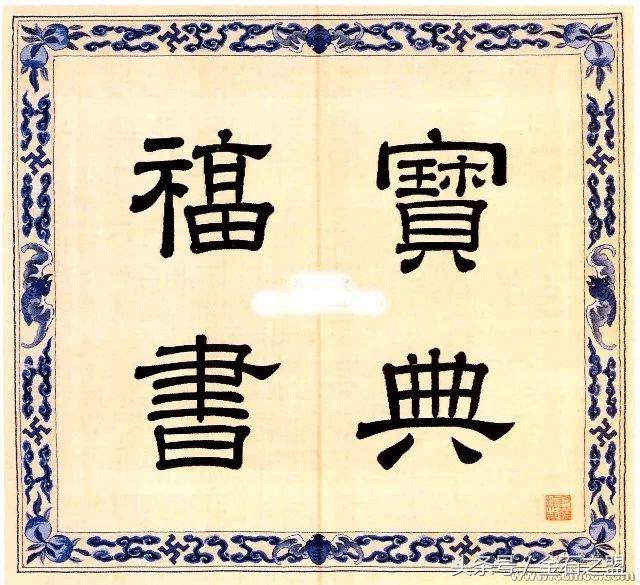 寶典
福書
头条号/金石之盟